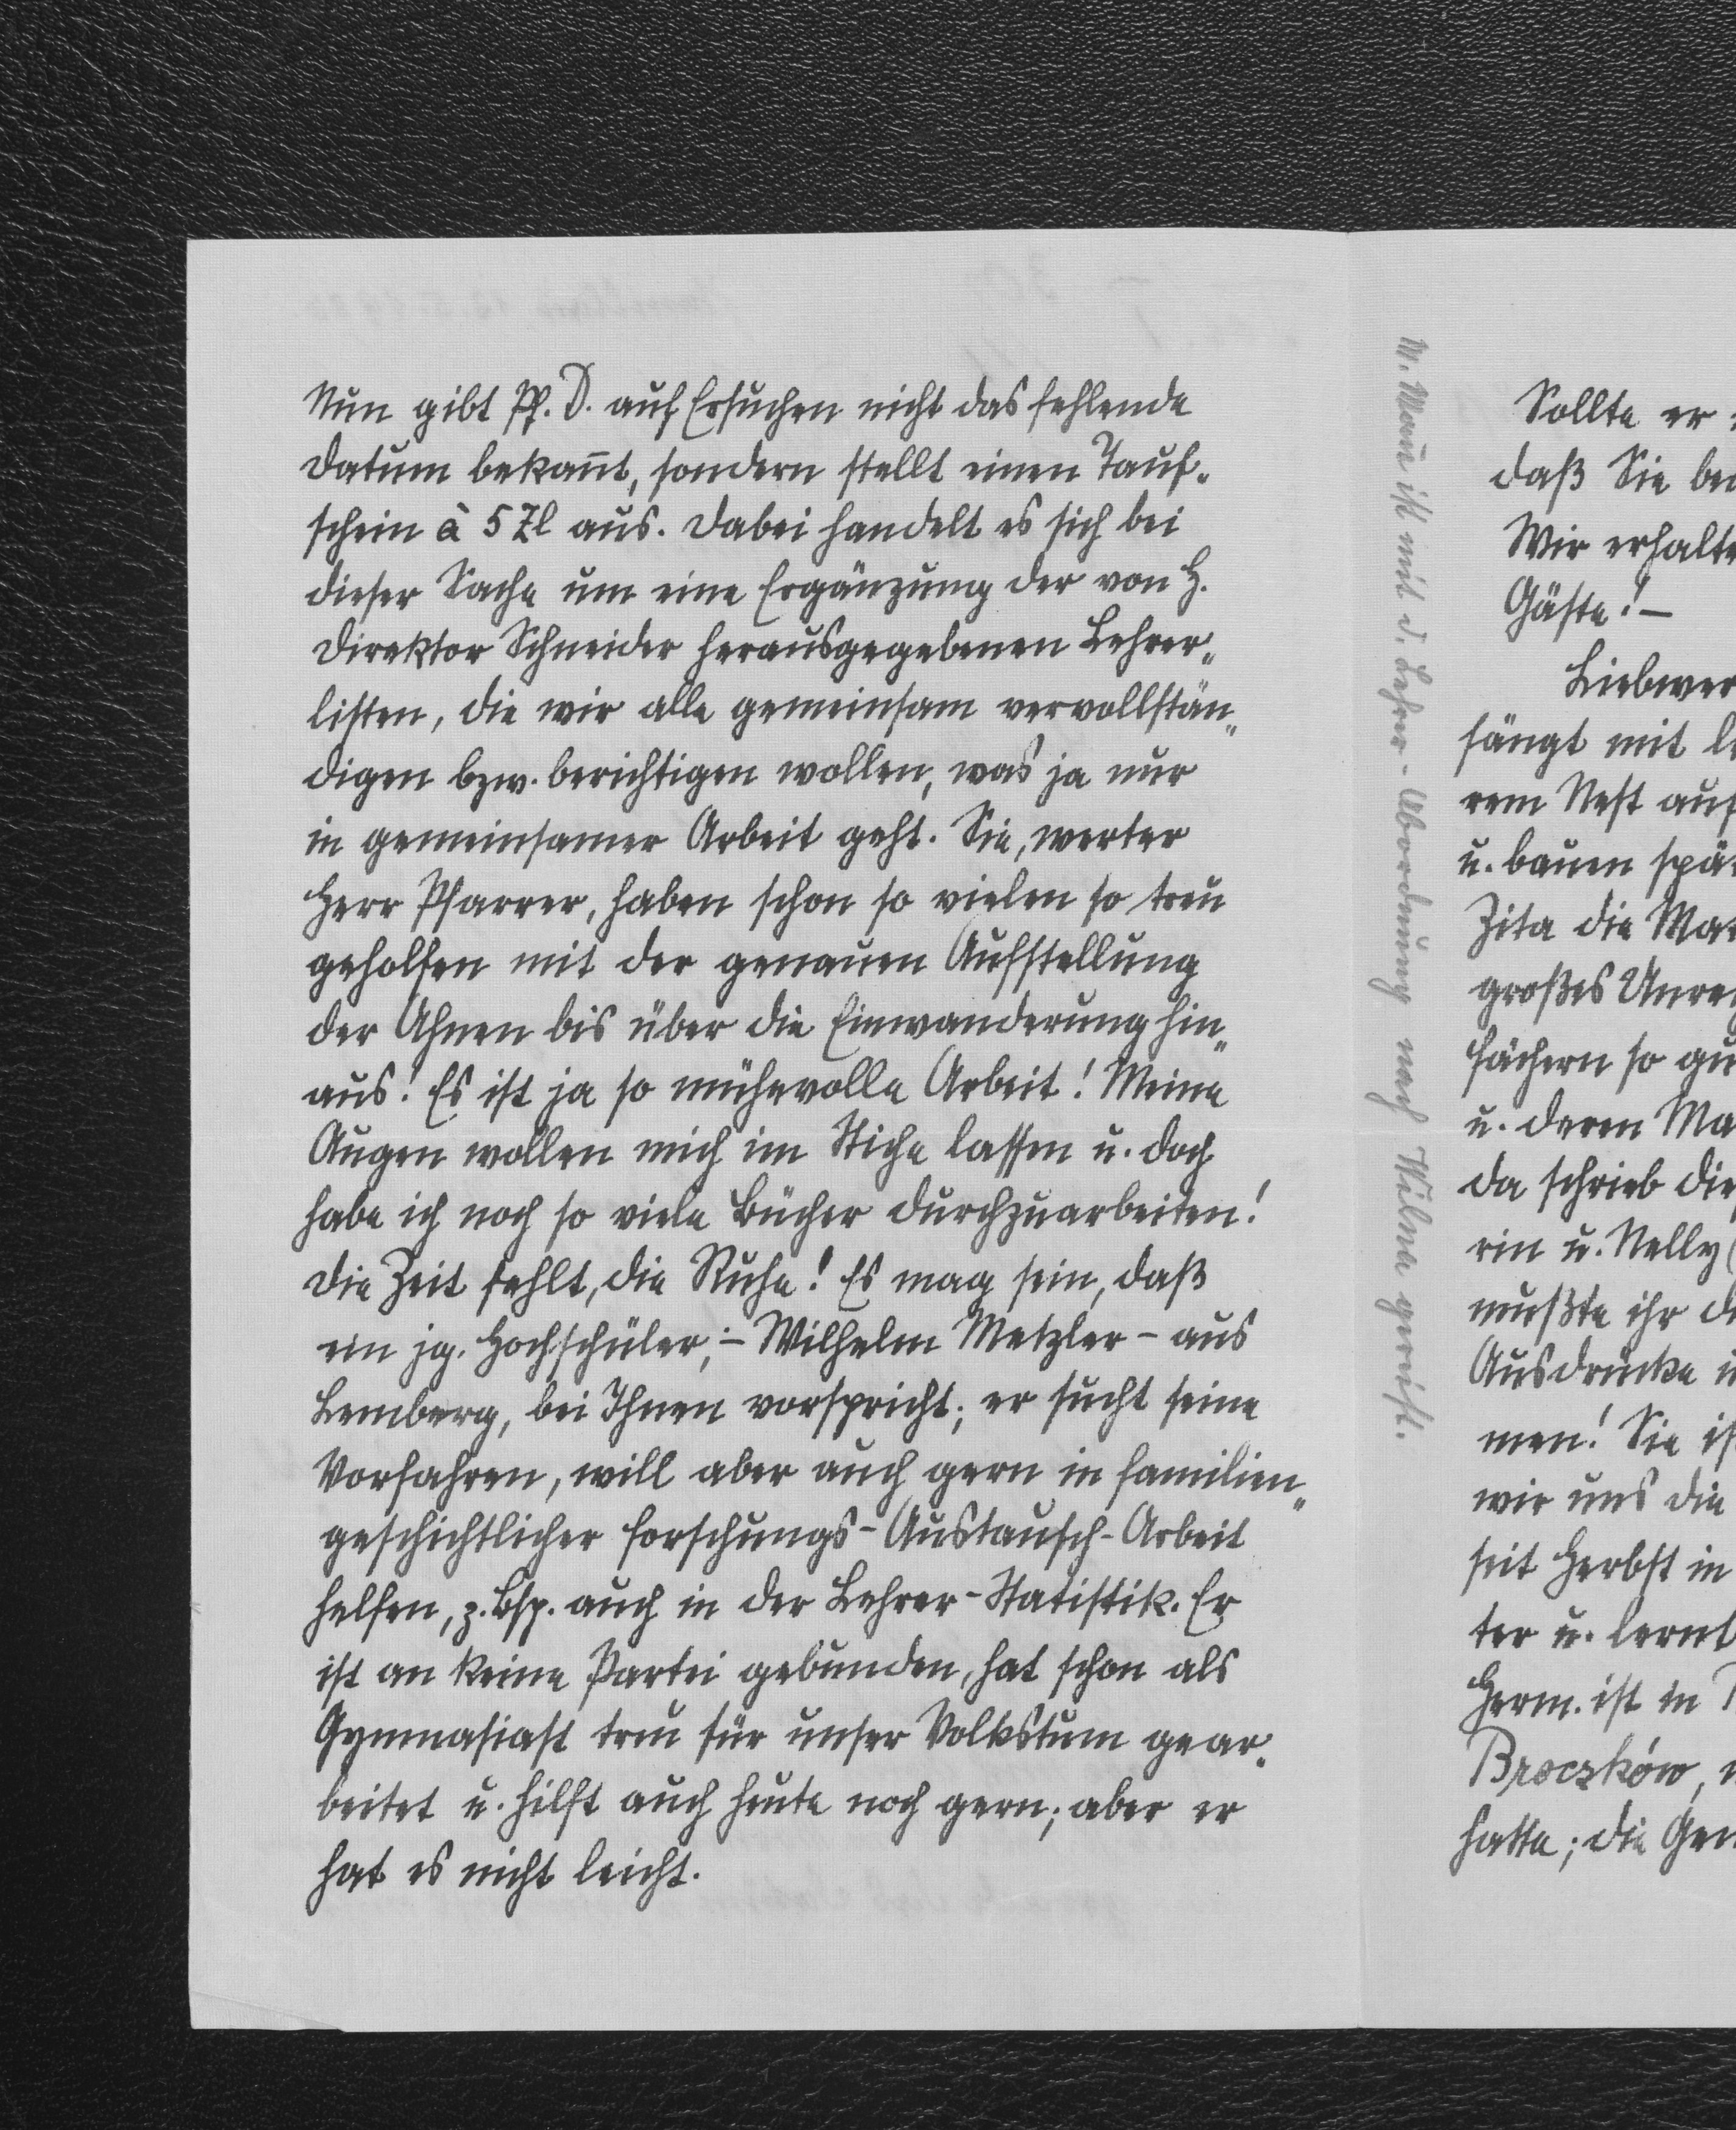 Nun gibt Pf. D. auf Ersuchen nicht das fehlende
Datum bekannt, sondern stellt einen Tauf-
schein à 5 Zl aus. Dabei handelt es sich bei
dieser Sache um eine Ergänzung der von H.
Direktor Schneider herausgegebenen Lehrer-
listen, die wir alle gemeinsam vervollstän-
digen bzw. berichtigen wollen, was ja nur
in gemeinsamer Arbeit geht. Sie, werter
Herr Pfarrer, haben schon so vielen so treu
geholfen mit der genauen Aufstellung
der Ahnen bis über die Einwanderung hin-
aus! Es ist ja so mühevolle Arbeit! Meine
Augen wollen mich im Stiche lassen u. doch
habe ich noch so viele Bücher durchzuarbeiten!
Die Zeit fehlt, die Ruhe! Es mag sein, daß
ein jg. Hochschüler, - Wilhelm Metzler - aus
Lemberg, bei Ihnen vorspricht; er sucht seine
Vorfahren, will aber auch gern in familien-
geschichtlicher Forschungs-Austausch-Arbeit
helfen, z. Bsp. auch in der Lehrer-Statistik. Er
ist an keine Partei gebunden, hat schon als
Gymnasiast treu für unser Volkstum gear-
beitet u. hilft auch heute noch gern; aber er
hat es nicht leicht.
M. Mann ist mit d. Lehrer-Abordnung nach Wilna gereist.
Sollte er
daß Sie
Wir erhalte
Gäste! -
Liebwer
fängt mit
rem Nest auf
u. bauen spät
Zita die
großes Unre
fächern so gu
u. deren Ma
da schrieb die
rin u. Nelly (
mußte ihr d
Ausdrücke u
men! Sie is
wir uns die
seit Herbst in
ter u. lernt
Herm. ist in
Broczków,
hatte; die Gem